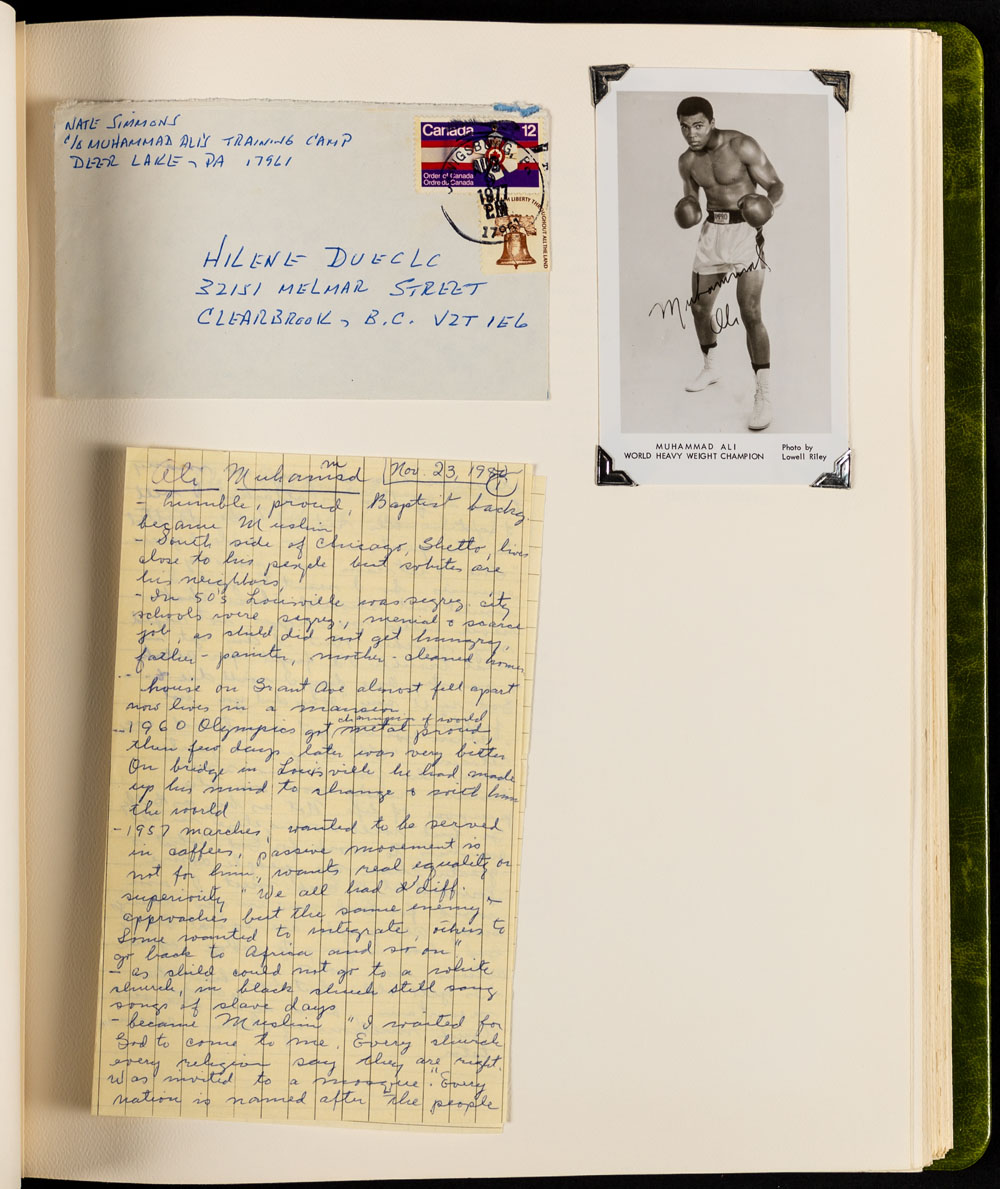 NATE SIMMONS
C/O MUHAMMAD ALI'S TRAINING CAMP
DEER LAKE, PA 17961
Canada 12
Order of Canada
Ordre du Canada
1977
PM
LIBERTY THROUGHOUT ALL THE LAND
HILENE DUECLC
32151 MELMAR STREET
CLEARBROOK, B.C. V2T 1E6
Muhammad
Ali
MUHAMMAD ALI
WORLD HEAVY WEIGHT CHAMPION
Photo by
Lowell Riley
Ali Muhamad Nov. 23, 198
- humble, proud, Baptist backg
became Muslim
- South side of Chicago, Ghetto, lives
close to his people but whites are
his neighbors
- In 50's Louisville was segreg city
schools were segreg, menial & scarce
job, as child did not get hungry,
father - painter, mother - cleaned homes
- house on Grant Ave almost fell apart
now lives in a mansion
champion of world
- 1960 Olympics got metal proud
then few days later was very bitter
On bridge in Louisville he had made
up his mind to change & with him
the world
- 1957 marches, wanted to be served
in caffees, passive movement no
not for him, wants real equality or
superiority "We all had diff.
approaches but the same enemy
Some wanted to integrate, others to
go back to Africa and so on"
- as child could not go to a white
church, in black church still sang
songs of slave days
- became Muslim "I wanted for
God to come to me. Every church
every religion say they are right.
Was invited to a mosque. "Every
nation is named after the people